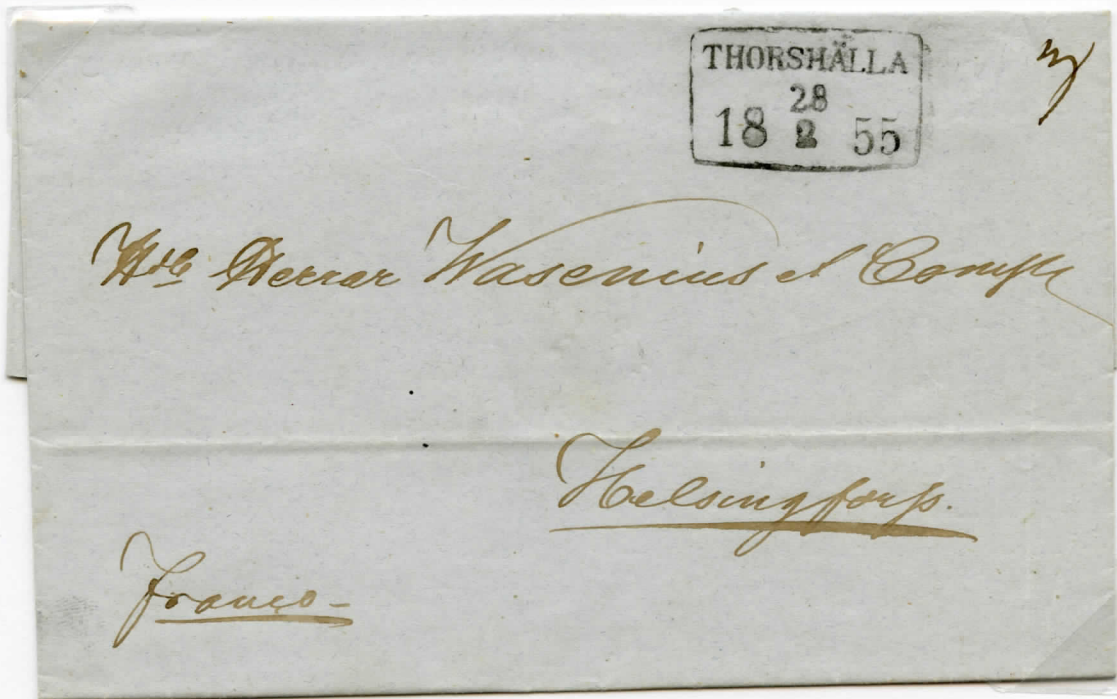 THORSHÄLLA
28
18 2 55
Herrar Wasenius et Comp
Helsingfors.
Franco